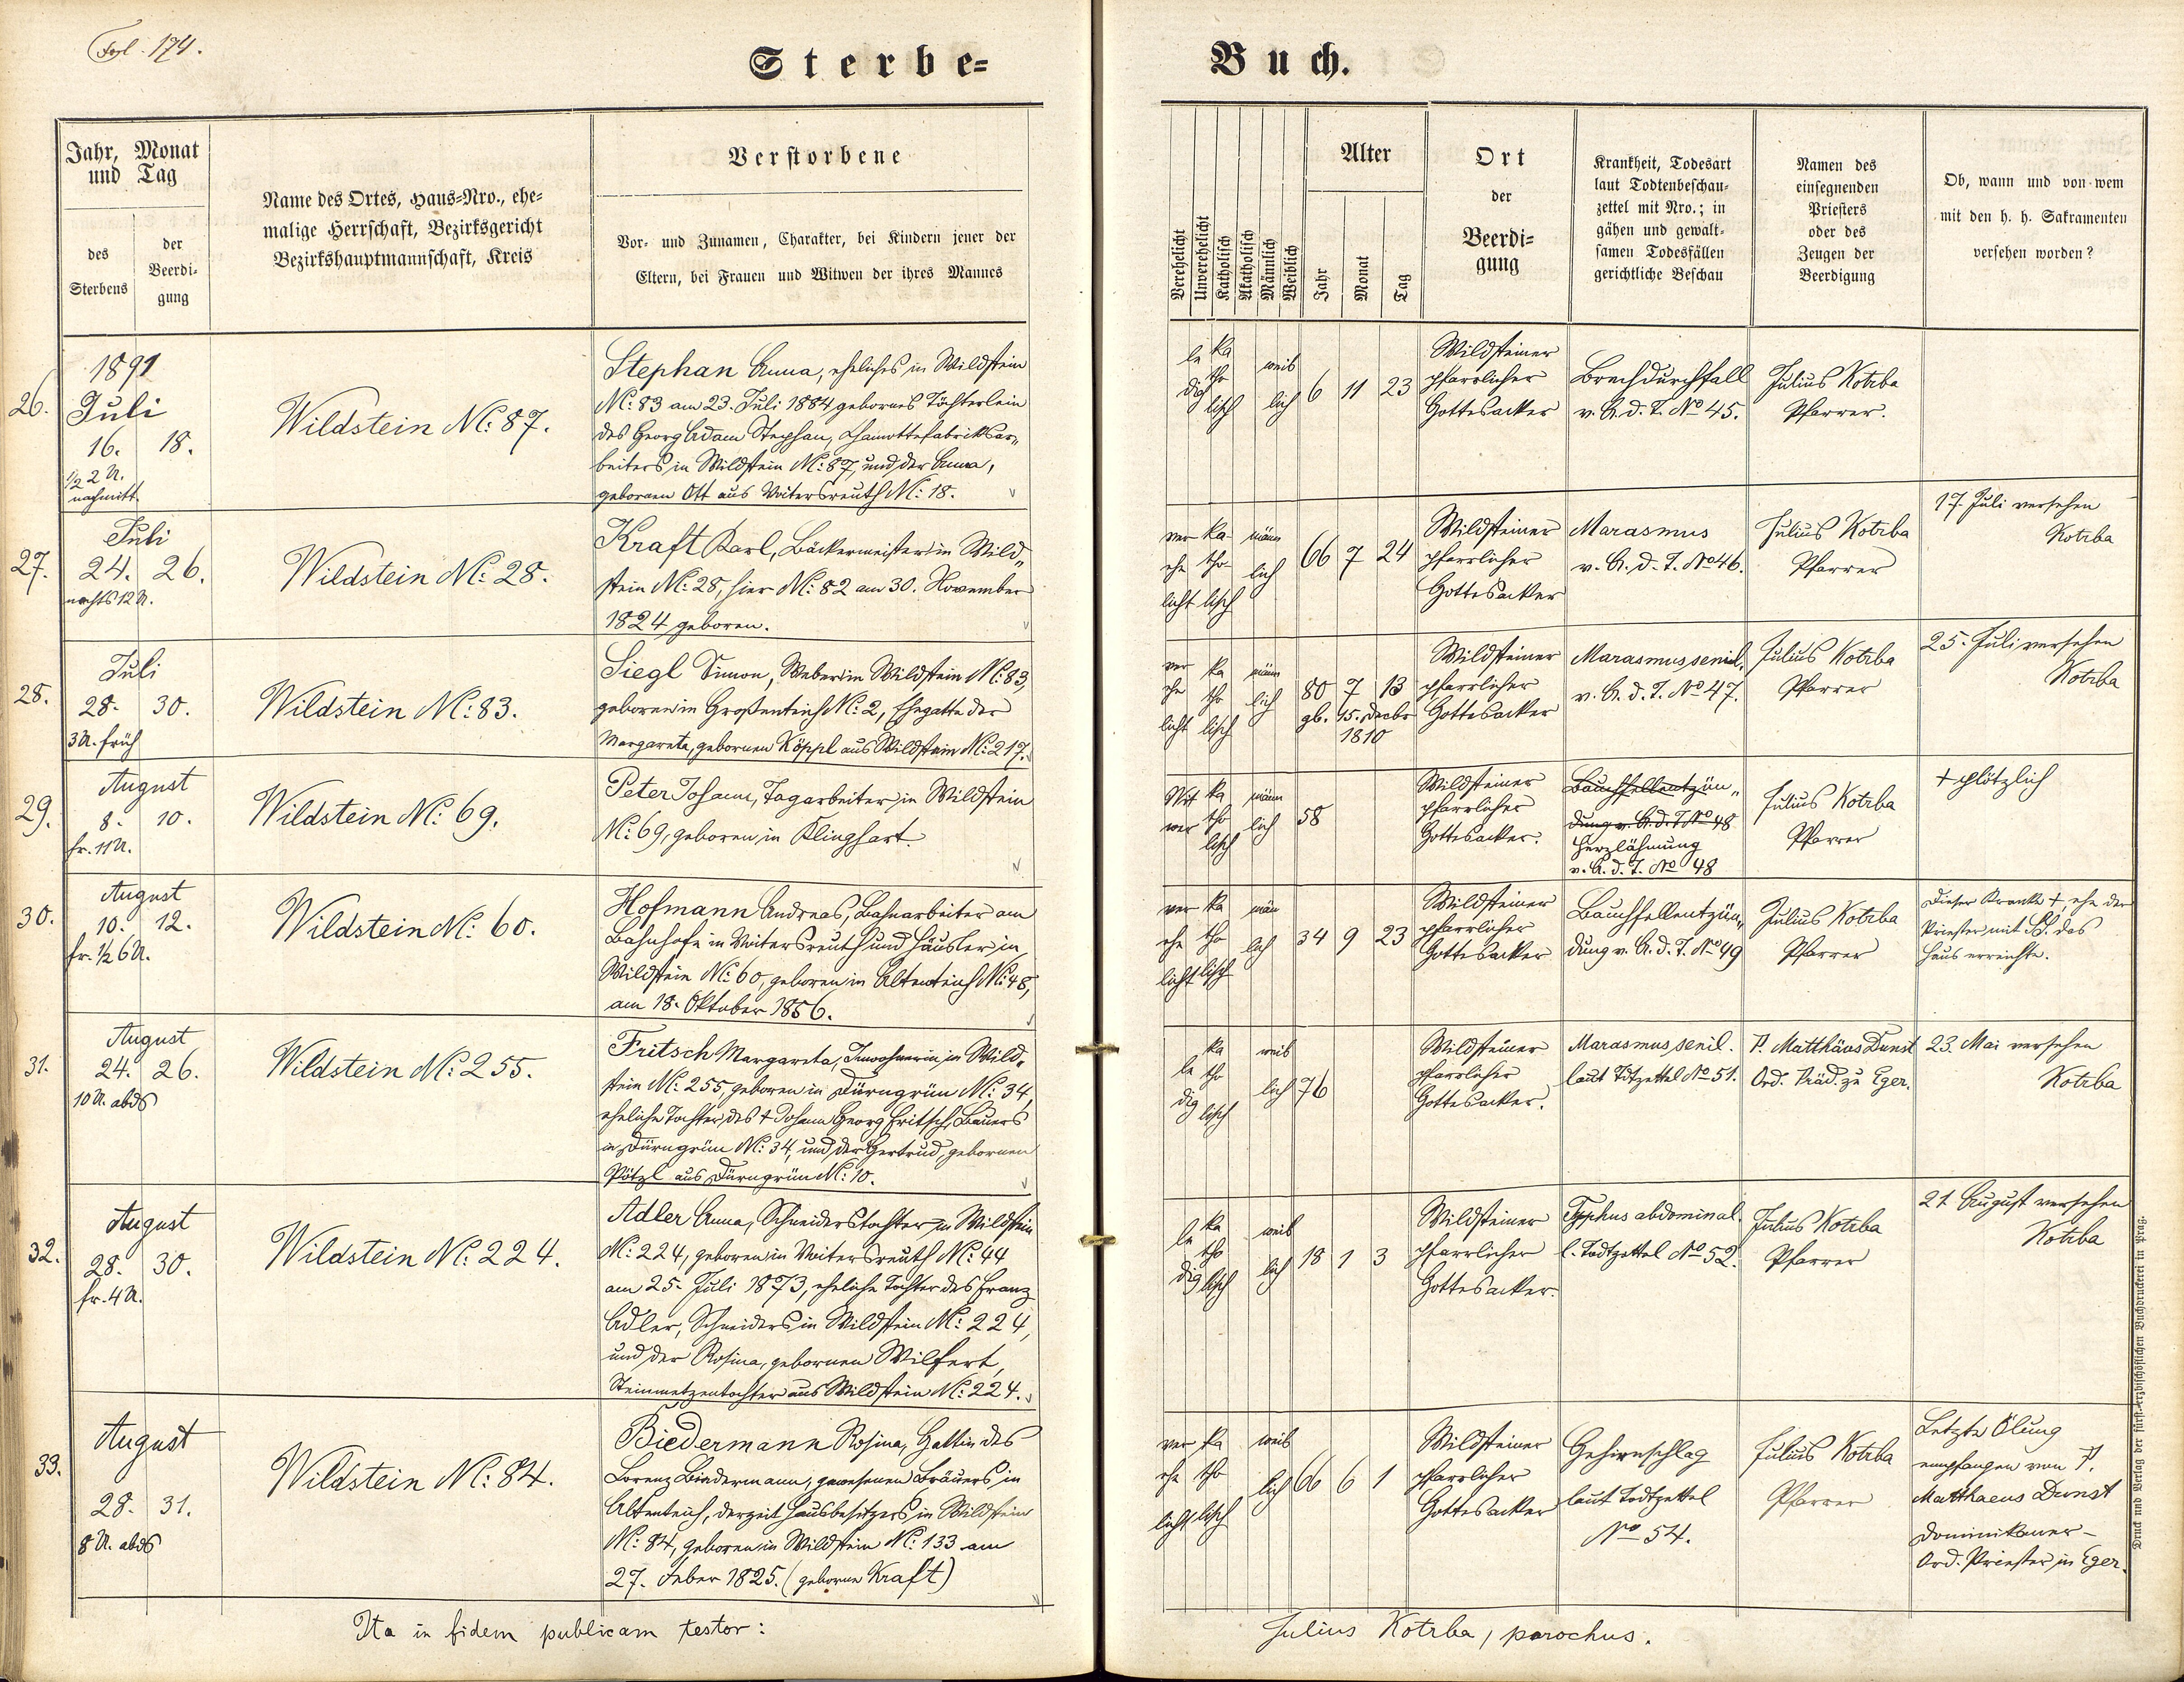 Fol. 174.
Sterbe=
Buch.
Jahr, Monat
und Tag
des
Sterbens
der
Beerdi-
gung
Name des Ortes, Haus=Nro., ehe=
malige Herrschaft, Bezirksgericht
Bezirkshauptmannschaft, Kreis
Verstorbene
Vor- und Zunamen, Charakter, bei Kindern jener der
Eltern, bei Frauen und Witwen der ihres Mannes
Verehelicht
Unverehelicht
Katholisch
Akatholisch
Männlich
Weiblich
Alter
Jahr
Monat
Tag
Ort
der
Beerdi=
gung
Krankheit, Todesart
laut Todtenbeschau=
zettel mit Nro.; in
gähen und gewalt=
samen Todesfällen
gerichtliche Beschau
Namen des
einsegnenden
Priesters
oder des
Zeugen der
Beerdigung
Ob, wann und von wem
mit den h. h. Sakramenten
versehen worden?
26.
1891
Juli
16. 18.
1/2 2 U.
nachmitt.
Wildstein N: 87.
Stephan Anna, eheliches in Wildstein
N: 83 am 23. Juli 1884 gebornes Töchterlein
des Georg Adam Stephan, Chamottefabriksar„
beiters in Wildstein N: 87, und der Anna,
gebornen Ott aus Voitersreuth N: 18.
le ka
dig tho
lisch
weib
lich
6 11 23
Wildsteiner
pfarrlicher
Gottesacker
Brechdurchfall
v. A. d. T. No 45.
Julius Kotrba
Pfarrer.
27.
Juli
24. 26.
nachts 12 U.
Wildstein N: 28.
Kraft Karl, Bäckermeister in Wild„
stein N: 28, hier N: 82 am 30. November
1824 geboren.
ver ka-
ehe tho-
licht lisch
männ
lich
66 7 24
Wildsteiner
pfarrlicher
Gottesacker
Marasmus
v. A. d. T. No 46.
Julius Kotrba
Pfarrer
17. Juli versehen
Kotrba
28.
Juli
28. 30.
3 U. früh
Wildstein N: 83.
Siegl Simon, Weber in Wildstein N: 83,
geboren in Großenteich N: 2, Ehegatte der
Margareta, gebornen Köppl aus Wildstein N: 217.
ver ka
ehe tho
licht lisch
männ
lich
80 7 13
gb. 15. Decbr
1810
Wildsteiner
pfarrlicher
Gottesacker
Marasmus senil.
v. A. d. T. No 47.
Julius Kotrba
Pfarrer
25. Juli versehen
Kotrba
29.
August
8. 10.
fr. 11 U.
Wildstein N: 69.
Peter Johann, Tagarbeiter in Wildstein
N: 69, geboren in Klinghart.
Wit ka
wer tho
lisch
männ
lich
58
Wildsteiner
pfarrlicher
Gottesacker.
Bauchfellentzün„
dung v. A. d. T. No 48
Herzlähmung
v. A. d. T. No 48
Julius Kotrba
Pfarrer
† plötzlich
30.
August
10. 12.
fr. 1/2 6 U.
Wildstein N: 60.
Hofmann Andreas, Bahnarbeiter am
Bahnhofe in Voitersreuth und Häusler in
Wildstein N: 60, geboren in Altenteich N: 48,
am 18. Oktober 1856.
ver ka
ehe tho
licht lisch
män
lich
34 9 23
Wildsteiner
pfarrlicher
Gottesacker
Bauchfellentzün„
dung v. A. d. T. No 49
Julius Kotrba
Pfarrer
Dieser Kranke †, ehe der
Priester mit SS. das
Haus erreichte.
31.
August
24. 26.
10 U. abds
Wildstein N: 255.
Fritsch Margareta, Inwohnerin in Wild„
stein N: 255, geboren in Dürngrün N: 34,
eheliche Tochter des † Johann Georg Fritsch, Bauers
in Dürngrün N: 34, und der Gertrud, gebornen
Pötzl aus Dürngrün N: 10.
le ka
dig tho
lisch
weib
lich
76
Wildsteiner
pfarrlicher
Gottesacker.
Marasmus senil.
laut Tdtzettel No 51.
P. Matthäus Dunst
Ord. Präd. zu Eger.
23. Mai versehen
Kotrba
32.
August
28. 30.
fr. 4 U.
Wildstein N: 224.
Adler Anna, Schneiderstochter in Wildstein
N: 224, geboren in Voitersreuth N: 44
am 25. Juli 1873, eheliche Tochter des Franz
Adler, Schneiders in Wildstein N: 224,
und der Rosina, gebornen Wilfert,
Steinmetzentochter aus Wildstein N: 224.
le ka
dig tho
lisch
weib
lich
18 1 3
Wildsteiner
pfarrlicher
Gottesacker.
Typhus abdominal.
l. Todtzettel No 52.
Julius Kotrba
Pfarrer
21. August versehen
Kotrba
33.
August
28. 31.
8 U. abds
Wildstein N: 84.
Biedermann Rosina, Gattin des
Lorenz Biedermann, gewesenen Bräuers in
Altenteich, derzeit Hausbesitzers in Wildstein
N: 84, geboren in Wildstein N: 133 am
27. Feber 1825. (geborne Kraft)
ver ka
ehe tho
licht lisch
weib
lich
66 6 1
Wildsteiner
pfarrlicher
Gottesacker
Gehirnschlag
laut Todtzettel
No 54.
Julius Kotrba
Pfarrer
Letzte Ölung
empfangen von P.
Matthaeus Dunst
Dominikaner-
Ord. Priester in Eger.
Ita in fidem publicam testor:
Julius Kotrba, parochus.
Druck und Verlag der fürst-erzbischöflichen Buchdruckerei in Prag.